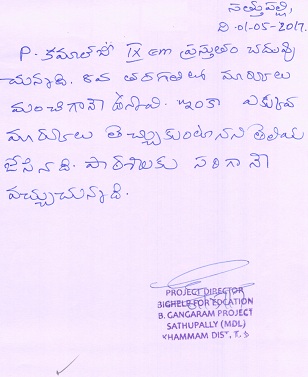 సత్తుపల్లి,
ది.01-05-2017.
P. కమాల్ బీ IX EM ప్రస్తుతం చదువు
చున్నది. 8వ తరగతిలో మార్కులు
మంచిగానే వచ్చినవి. ఇంకా ఎక్కువ
మార్కులు తెచ్చుకుంటానని తెలియ
జేసినది. పాఠశాలకు సరిగానే
వచ్చుచున్నది.
PROJECT DIRECTOR
BIGHELP FOR EDUCATION
B. GANGARAM PROJECT
SATHUPALLY (MDL)
KHAMMAM DIST, T.S